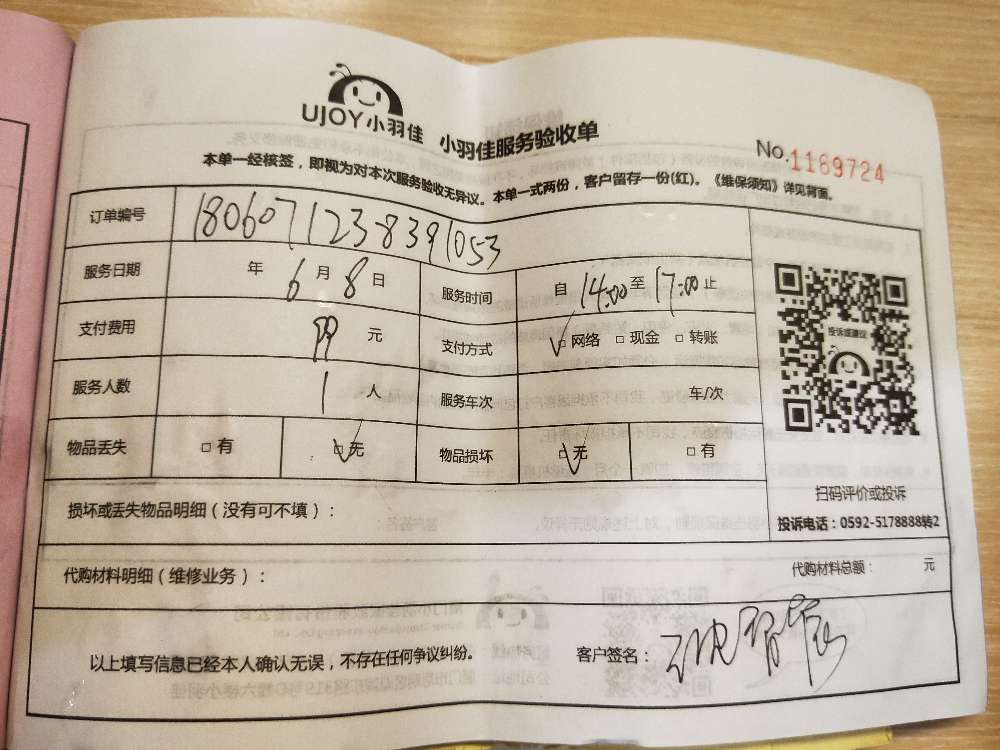 UJOY小羽佳 小羽佳服务验收单
No.1169724
本单一经核签，即视为对本次服务验收无异议。本单一式两份，客户留存一份(红)。《维保须知》详见背面。
订单编号 1806071238391053
服务日期 年 6 月 8 日 服务时间 自 14:00 至 17:00 止
支付费用 99 元 支付方式 □网络 □现金 □转账
服务人数 1 人 服务车次 车/次
物品丢失 □有 □无 物品损坏 □无 □有
投诉或建议
扫码评价或投诉
损坏或丢失物品明细（没有可不填）：
投诉电话：0592-5178888转2
代购材料明细（维修业务）： 代购材料总额： 元
以上填写信息已经本人确认无误，不存在任何争议纠纷。 客户签名：